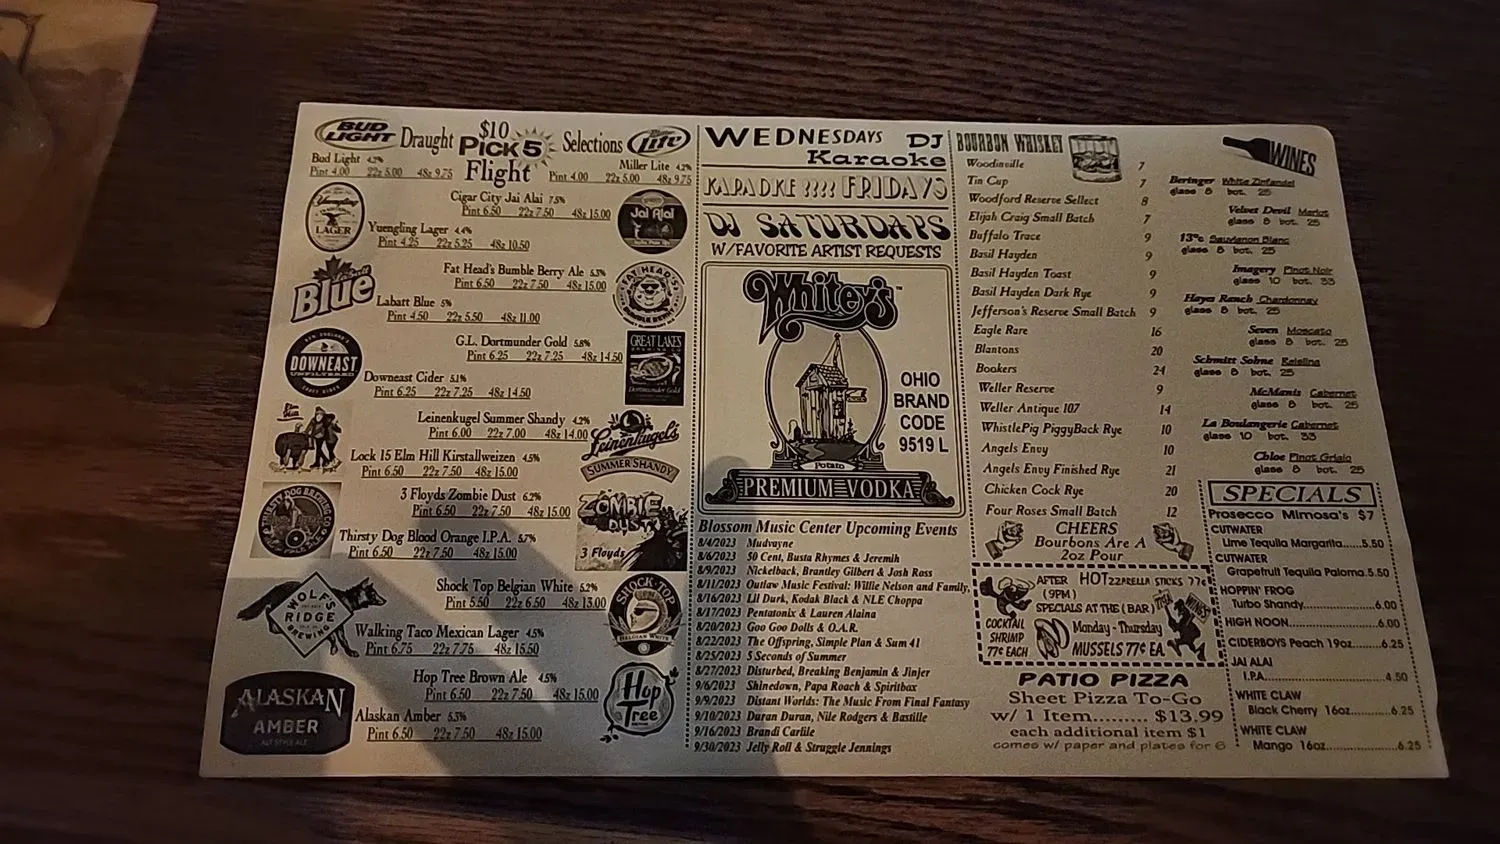 BUD LIGHT Draught $10 PICK 5 Flight Selections Miller Lite
Bud Light 4.2%
Pint 4.00 22z 5.00 48z 9.75
Miller Lite 4.2%
Pint 4.00 22z 5.00 48z 9.75
Cigar City Jai Alai 7.5%
Pint 6.50 22z 7.50 48z 15.00
Yuengling LAGER
Jai Alai
Yuengling Lager 4.4%
Pint 4.25 22z 5.25 48z 10.50
Fat Head's Bumble Berry Ale 5.3%
Pint 6.50 22z 7.50 48z 15.00
FAT HEAD'S
BUMBLE BERRY
Labatt Blue
Labatt Blue 5%
Pint 4.50 22z 5.50 48z 11.00
G.L. Dortmunder Gold 5.8%
Pint 6.25 22z 7.25 48z 14.50
GREAT LAKES
BREWING CO
Dortmunder Gold
DOWNEAST
UNFILTERED
CRAFT CIDER
Downeast Cider 5.1%
Pint 6.25 22z 7.25 48z 14.50
Leinenkugel Summer Shandy 4.2%
Pint 6.00 22z 7.00 48z 14.00
Leinenkugel's
SUMMER SHANDY
Elm Hill
Lock 15 Elm Hill Kirstallweizen 4.5%
Pint 6.50 22z 7.50 48z 15.00
3 Floyds Zombie Dust 6.2%
Pint 6.50 22z 7.50 48z 15.00
ZOMBIE DUST
3 Floyds
THIRSTY DOG BREWING CO
Thirsty Dog Blood Orange I.P.A. 5.7%
Pint 6.50 22z 7.50 48z 15.00
Shock Top Belgian White 5.2%
Pint 5.50 22z 6.50 48z 13.00
SHOCK TOP
BELGIAN WHITE
WOLF'S RIDGE BREWING
Walking Taco Mexican Lager 4.5%
Pint 6.75 22z 7.75 48z 15.50
Hop Tree Brown Ale 4.5%
Pint 6.50 22z 7.50 48z 15.00
Hop Tree
ALASKAN
AMBER
ALT STYLE ALE
Alaskan Amber 5.3%
Pint 6.50 22z 7.50 48z 15.00
WEDNESDAYS DJ
Karaoke
KARAOKE ???? FRIDAYS
DJ SATURDAYS
W/FAVORITE ARTIST REQUESTS
Whitey's™
OHIO
BRAND
CODE
9519 L
Potato
PREMIUM VODKA
Blossom Music Center Upcoming Events
8/4/2023 Mudvayne
8/6/2023 50 Cent, Busta Rhymes & Jeremih
8/9/2023 Nickelback, Brantley Gilbert & Josh Ross
8/11/2023 Outlaw Music Festival: Willie Nelson and Family,
8/16/2023 Lil Durk, Kodak Black & NLE Choppa
8/17/2023 Pentatonix & Lauren Alaina
8/20/2023 Goo Goo Dolls & O.A.R.
8/22/2023 The Offspring, Simple Plan & Sum 41
8/25/2023 5 Seconds of Summer
8/27/2023 Disturbed, Breaking Benjamin & Jinjer
9/6/2023 Shinedown, Papa Roach & Spiritbox
9/9/2023 Distant Worlds: The Music From Final Fantasy
9/10/2023 Duran Duran, Nile Rodgers & Bastille
9/16/2023 Brandi Carlile
9/30/2023 Jelly Roll & Struggle Jennings
BOURBON WHISKEY
Woodinville 7
Tin Cup 7
Woodford Reserve Sellect 8
Elijah Craig Small Batch 7
Buffalo Trace 9
Basil Hayden 9
Basil Hayden Toast 9
Basil Hayden Dark Rye 9
Jefferson's Reserve Small Batch 9
Eagle Rare 16
Blantons 20
Bookers 24
Weller Reserve 9
Weller Antique 107 14
WhistlePig PiggyBack Rye 10
Angels Envy 10
Angels Envy Finished Rye 21
Chicken Cock Rye 20
Four Roses Small Batch 12
CHEERS
Bourbons Are A
2oz Pour
AFTER (9PM) HOTzzarella Sticks 77¢
SPECIALS AT THE (BAR)
Monday - Thursday
COCKTAIL SHRIMP 77¢ EACH
MUSSELS 77¢ EA.
WINGS
PATIO PIZZA
Sheet Pizza To-Go
w/ 1 Item......... $13.99
each additional item $1
comes w/ paper and plates for 6
WINES
Beringer White Zinfandel
glass 8 bot. 25
Velvet Devil Merlot
glass 8 bot. 25
13°c Sauvignon Blanc
glass 8 bot. 25
Imagery Pinot Noir
glass 10 bot. 33
Hayes Ranch Chardonnay
glass 8 bot. 25
Seven Moscato
glass 8 bot. 25
Schmitt Sohne Reisling
glass 8 bot. 25
McManis Cabernet
glass 8 bot. 25
La Boulangerie Cabernet
glass 10 bot. 33
Chloe Pinot Grigio
glass 8 bot. 25
SPECIALS
Prosecco Mimosa's $7
CUTWATER
Lime Tequila Margarita.....5.50
CUTWATER
Grapefruit Tequila Paloma.5.50
HOPPIN' FROG
Turbo Shandy..................6.00
HIGH NOON......................6.00
CIDERBOYS Peach 19oz...6.25
JAI ALAI
I.P.A...............................4.50
WHITE CLAW
Black Cherry 16oz...........6.25
WHITE CLAW
Mango 16oz....................6.25